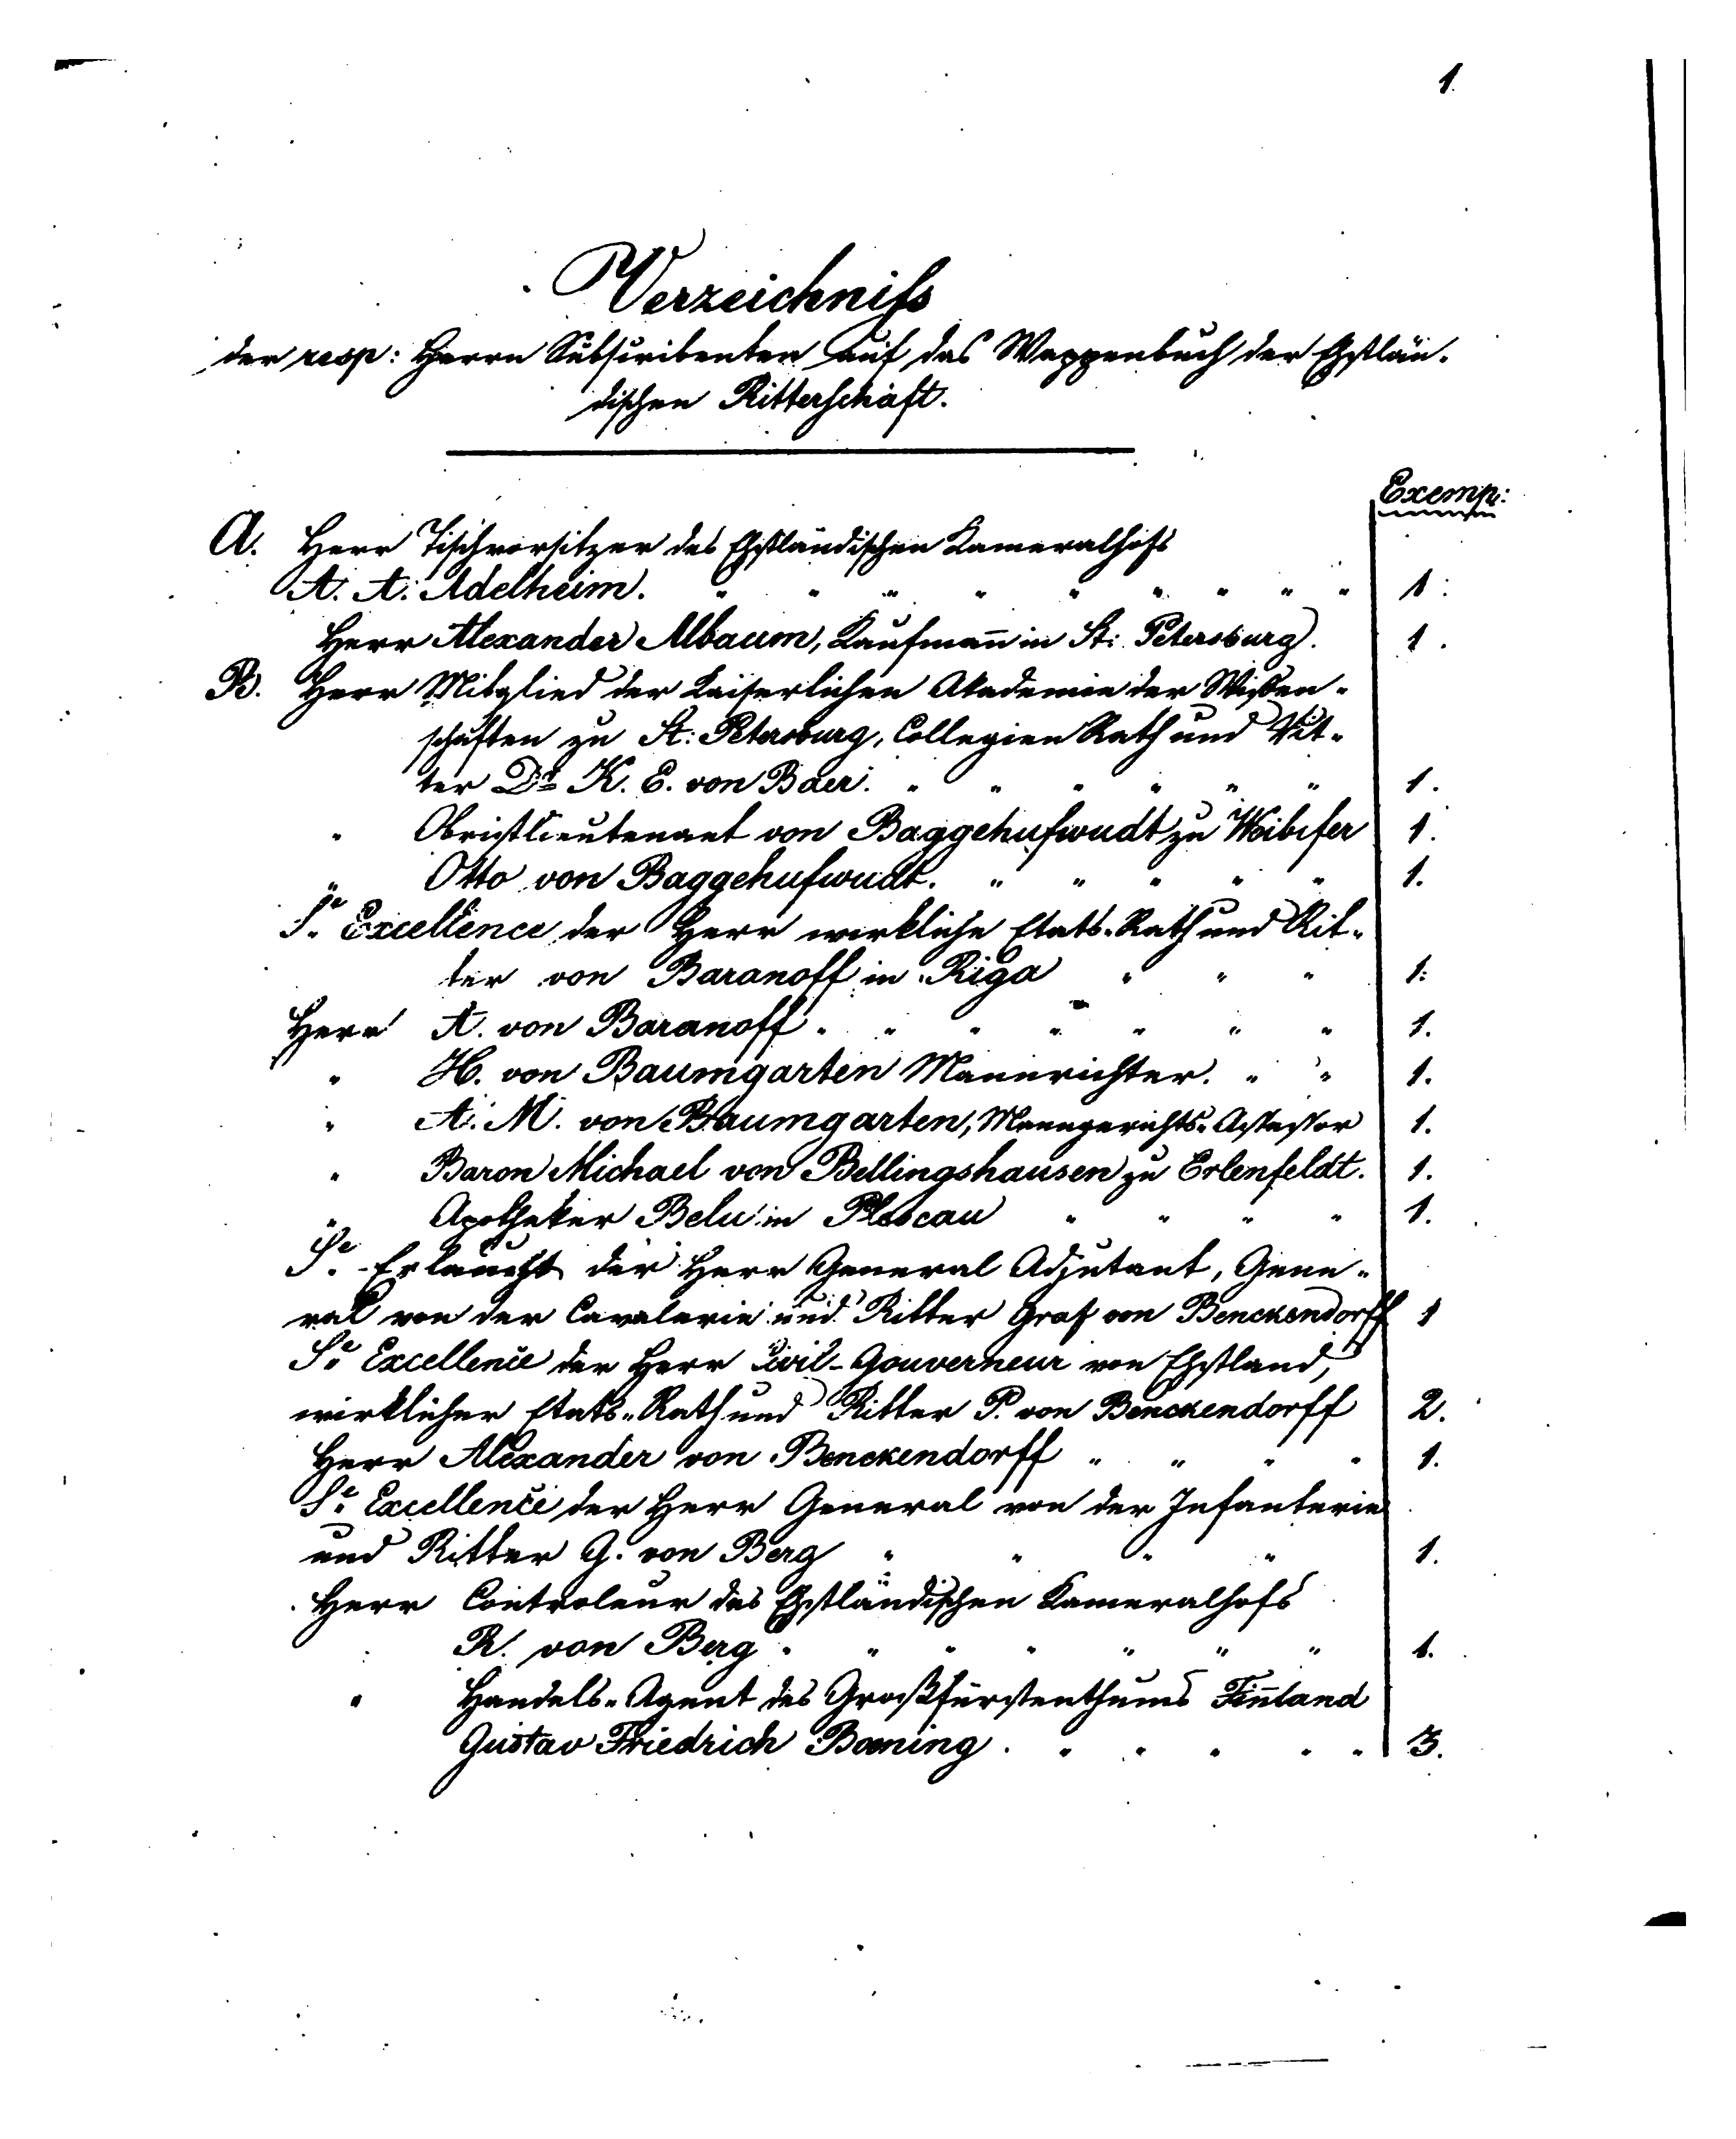 1.
Verzeichniß
der resp: Herrn Subscribenten auf das Wappenbuch der Ehstlän-
dischen Ritterschaft.
Exemp:
A. Herr Tischvorsitzer des Ehstländischen Kameralhofs
A. A. Adelheim. " " " " " " " " " 1.
Herr Alexander Albaum, Kaufmañ in St: Petersburg. 1.
B. Herr Mitglied der Kaiserlichen Akademie der Wißen-
schaften zu St: Petersburg, Collegien Rath und Rit-
ter Dr K. E. von Baer. " " " " " " 1.
" Obristlieutenant von Baggehufwudt zu Woibifer 1.
" Otto von Baggehufwudt. " " " " " 1.
Se Excellence der Herr wirkliche Etats-Rath und Rit-
ter von Baranoff in Riga " " " 1.
Herr A. von Baranoff " " " " " " " 1.
" H. von Baumgarten Mannrichter. " " 1.
" A. M. von Baumgarten, Manngerichts-Assessor 1.
" Baron Michael von Bellingshausen zu Erlenfeldt. 1.
" Apotheker Belu in " " " " 1.
Se Erlaucht der Herr General Adjutant, Gene-
ral von der Cavalerie und Ritter Graf von Benckendorff 1
Se Excellence der Herr Civil-Gouverneur von Ehstland,
wirklicher Etats-Rath und Ritter P. von Benckendorff 2.
Herr Alexander von Benckendorff " " " " 1.
Se Excellence der Herr General von der Infanterie
und Ritter G. von Berg " " " " 1.
Herr Controleur des Ehstländischen Kameralhofs
R. von Berg " " " " " " " 1.
" Handels-Agent des Großfürstenthums Fiñland
Gustav Friedrich Boening. " " " " " 3.